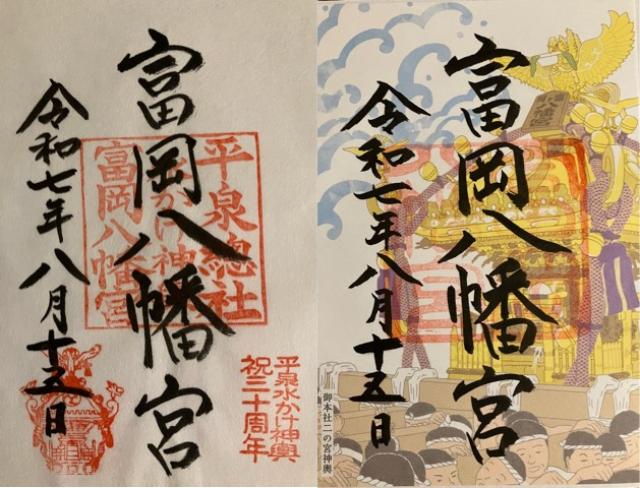 富岡八幡宮
令和七年八月十五日
平泉總社
富岡八幡宮
平泉水かけ神輿
祝三十周年
富岡八幡宮
令和七年八月十五日
御本社二の宮神輿